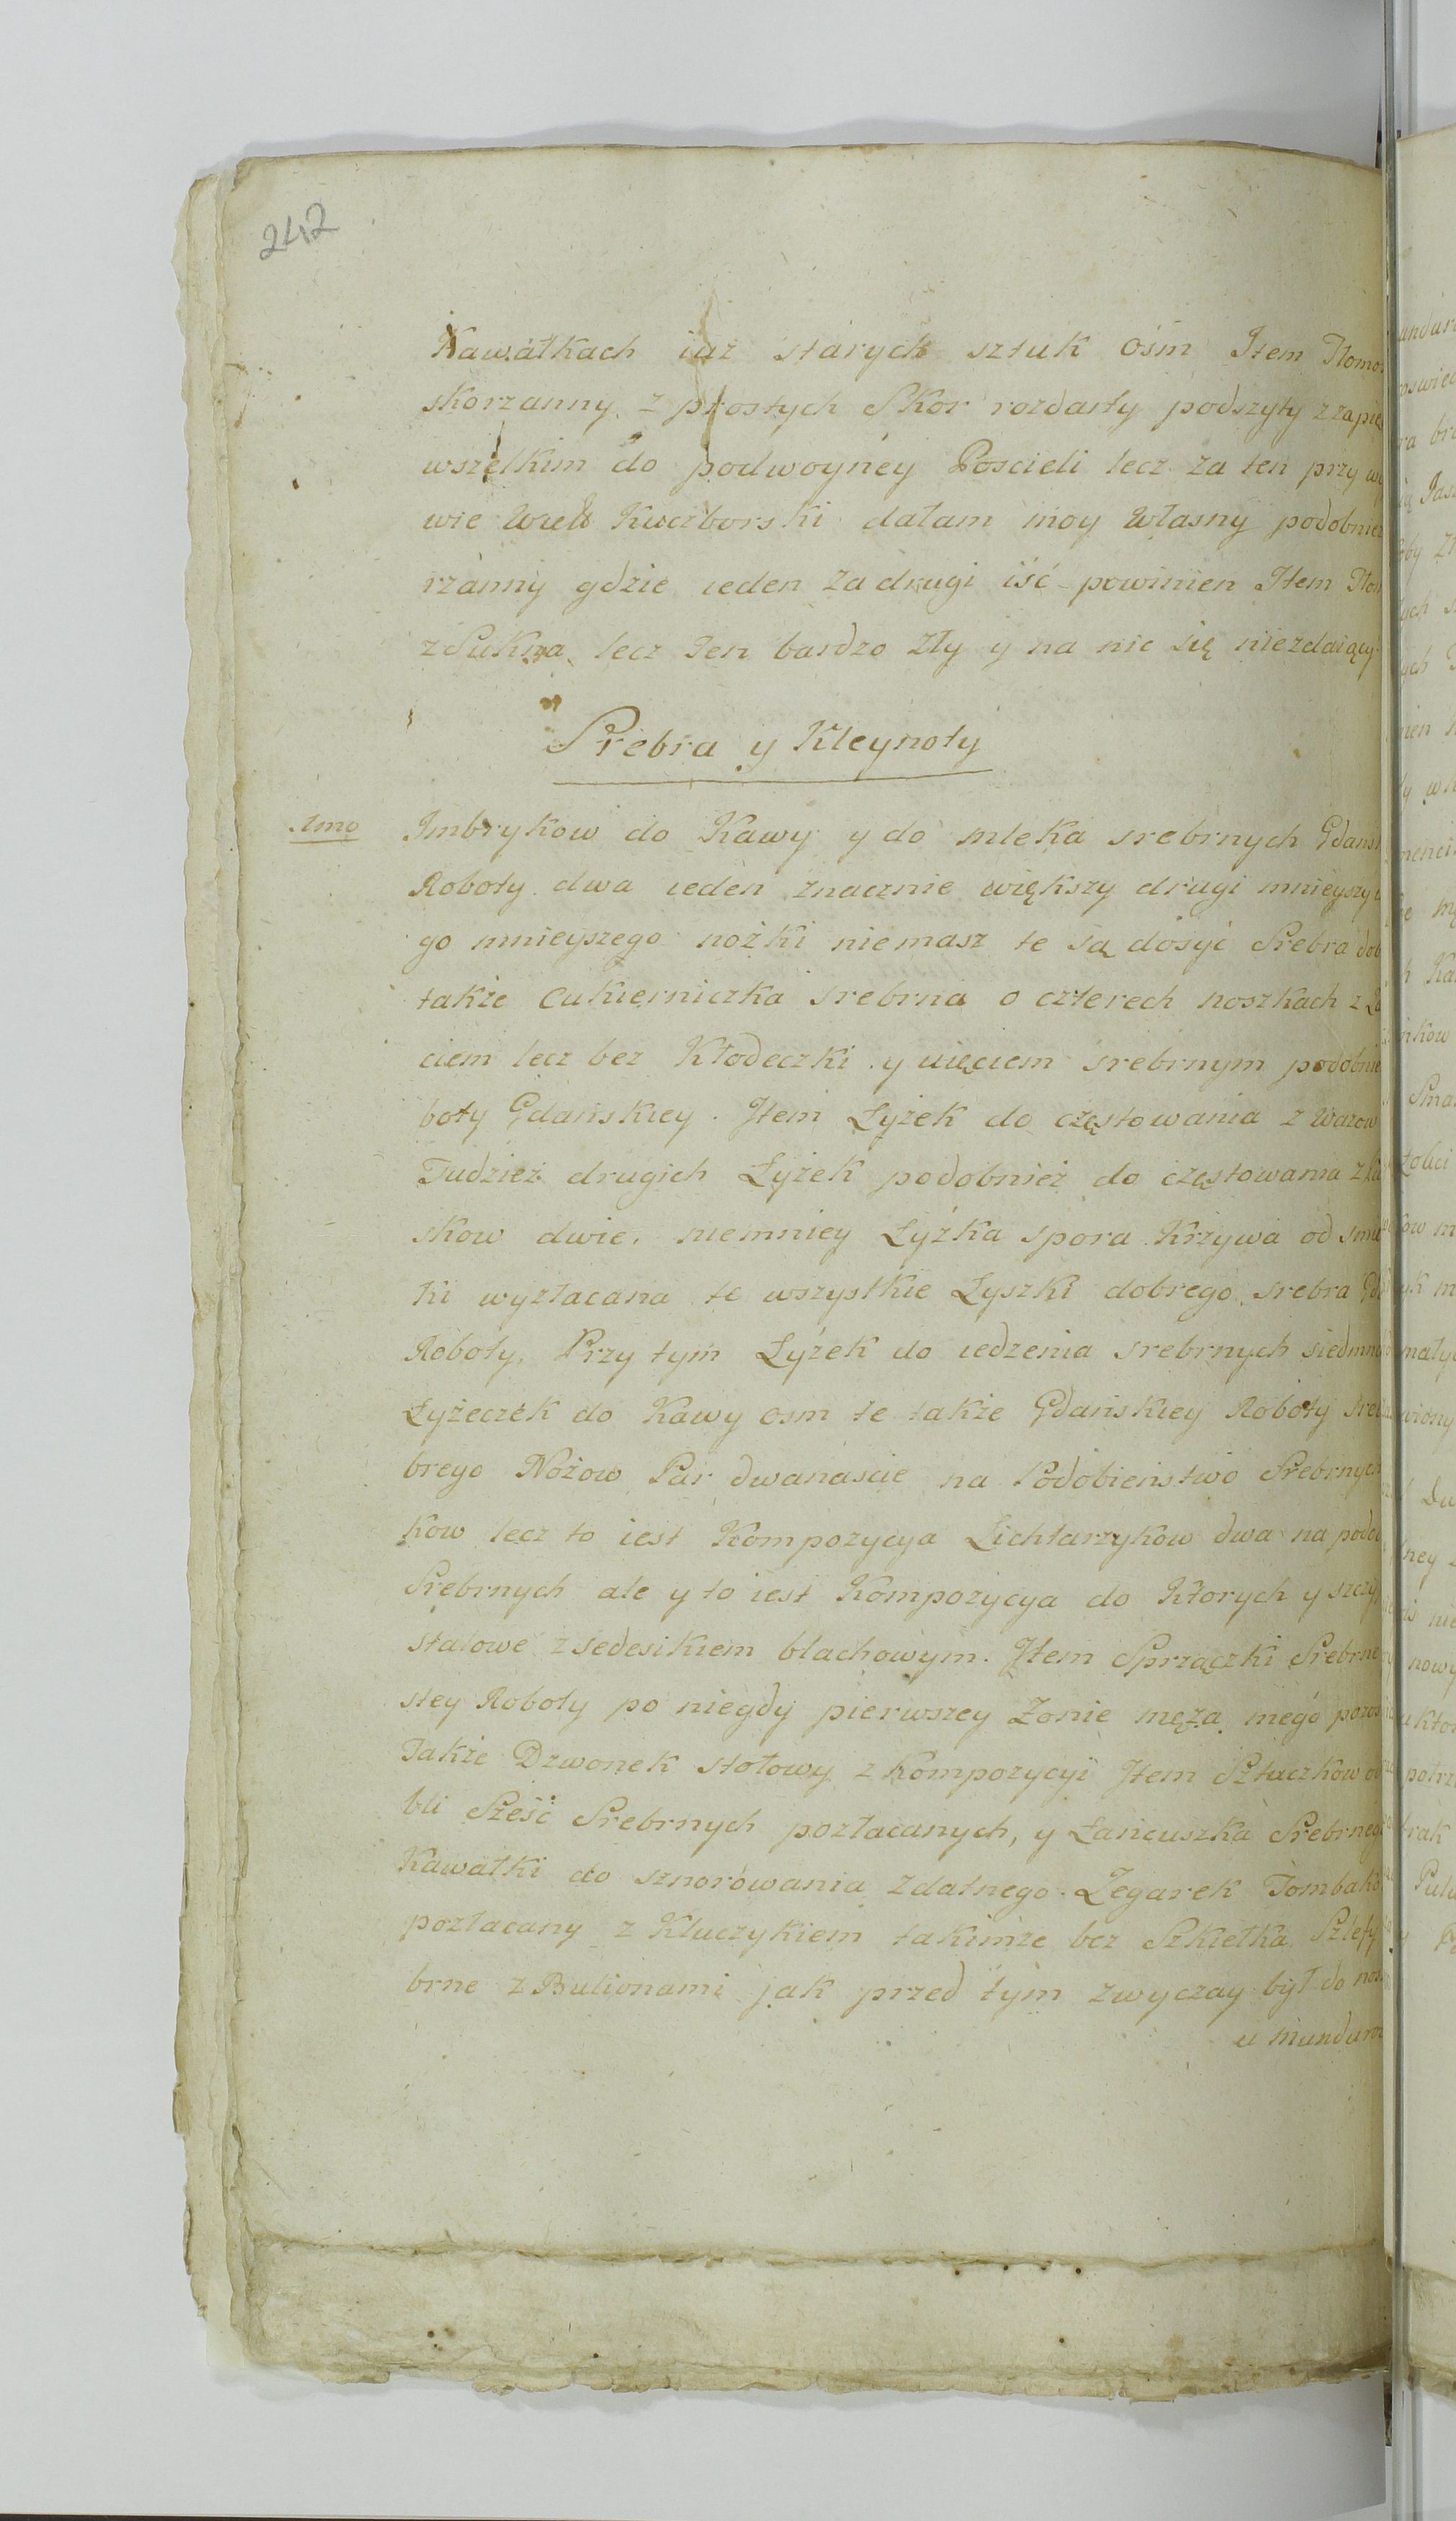 242
Kawałkach iuż starych sztuk ośm Item Tłomo
skorzanny z prostych Skor rozdarty podszyty z zapię
wszelkim do podwoyney Poscieli lecz za ten przy
wie Kuczborski dałam moy własny podobnież
rzanny gdzie ieden za drugi iść powinien Item Tłom
z Sukna lecz ten bardzo zły y na nic się niezdaiący
Srebra y Kleynoty
1mo Imbrykow do Kawy y do mleka srebrnych Gdans
Roboty dwa ieden znacznie większy drugi mnieyszy
go mnieyszego nożki niemasz te są dosyć Srebra dob
także Cukierniczka srebrna o czterech noszkach z
ciem lecz bez Kłodeczki y uięciem srebrnym podobnie
boty Gdańskiey. Item Łyżek do częstowania z Wazow
Tudzież drugich Łyżek podobnież do częstowania z
skow dwie, niemniey Łyżka spora Krzywa od smie
ki wyzłacana te wszystkie Łyszki dobrego srebra Gd
Roboty, Przy tym Łyżek do iedzenia srebrnych siedmna
Łyżeczek do Kawy osm te także Gdańskiey Roboty sre
brego Nożow Par dwanascie na Podobieństwo Srebrnych
kow lecz to iest Kompozycya Lichtarzykow dwa na podo
Srebrnych ale y to iest Kompozycya do Ktorych y szczy
stalowe z sedesikiem blachowym. Item Sprzączki Srebrne
stey Roboty po niegdy pierwszey Żonie męża mego pozos
Także Dzwonek stołowy z Kompozycyi Item Sztuczkow od
bli Sześć Srebrnych pozłacanych, y Łańcuszka Srebrnego
Kawałki do sznorówania zdatnego. Zegarek Tombako
pozłacany z Kluczykiem takimże bez Szkiełka Szlefy
brne z Bulionami jak przed tym zwyczay był do nosz
u mundurow